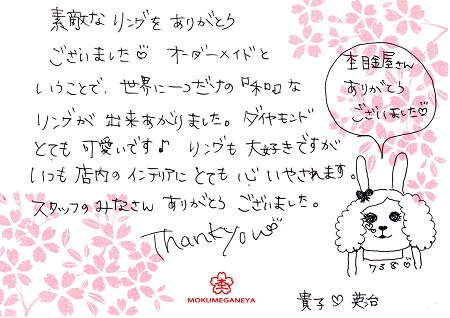 素敵なリングをありがとう
ございました♡ オーダーメイドと
いうことで、世界に一つだけの『和』な
リングが出来あがりました。ダイヤモンド
とても可愛いです♪ リングも大好きですが
いつも店内のインテリアにとても心いやされます。
スタッフのみなさん ありがとうございました。
Thank you♡
杢目金屋さん
ありがとう
ございました♡
MOKUMEGANEYA
貴子♡英治